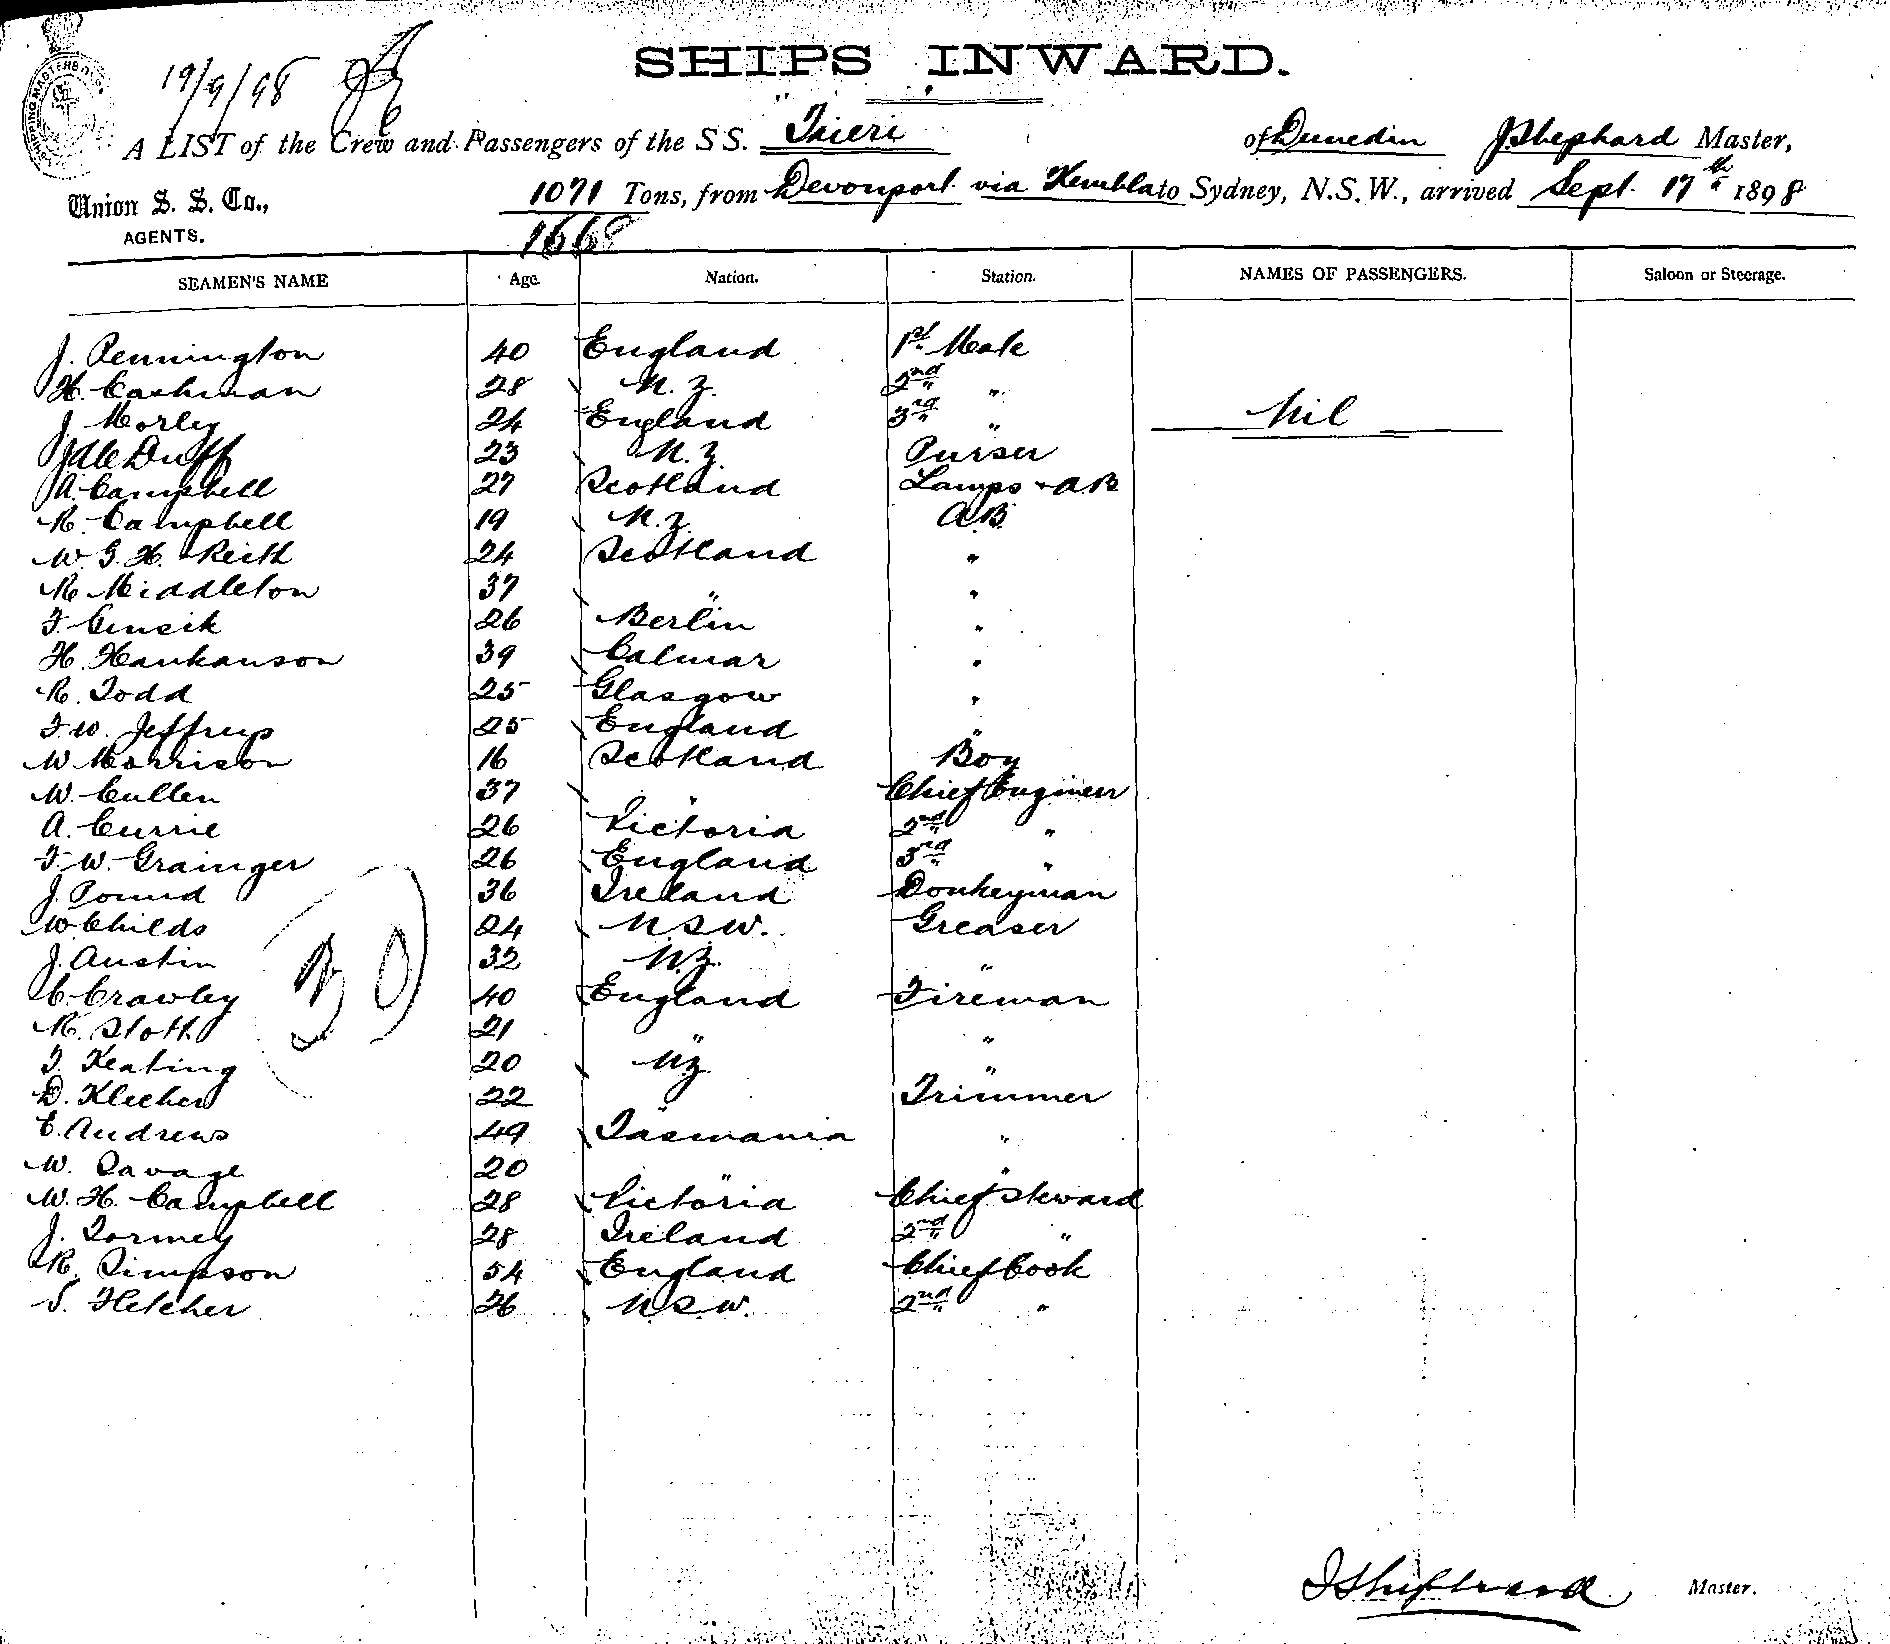 SHIPS INWARD.
19/9/98
A LIST of the Crew and Passengers of the S S. Taieri of Dunedin J Shephard Master,
Union S. S. Co., 1071 Tons, from Devonport via Kembla to Sydney, N.S.W., arrived Sept. 17th 1898
AGENTS. 1668
SEAMEN'S NAME Age. Nation. Station. NAMES OF PASSENGERS. Saloon or Steerage.
J. Pennington 40 England 1st Mate
H. Cashman 28 N. Z. 2nd "
J. Morley 24 England 3rd " Nil
Duff 23 N. Z. Purser
A. Campbell 27 Scotland Lamps + A.B
R. Campbell 19 N. Z. A.B.
W. G. H. Keith 24 Scotland "
R. Middleton 37 " "
F. 26 Berlin "
H. Hankanson 39 Calmar "
R. Todd 25 Glasgow "
F. W. Jeffreys 25 England "
W Morrison 16 Scotland Boy
W. Cullen 37 " Chief Engineer
A. Currie 26 Victoria 2nd "
F. W. Grainger 26 England 3rd "
J. Pound 36 Ireland Donkeyman
W Childs 24 N.S.W. Greaser
J. Austin 32 N.Z. "
C. Crawley 40 England Fireman
R. Stott 21 " "
T. Keating 20 N.Z. "
D. 22 " Trimmer
E. Andrews 49 Tasmania "
W. Savage 20 " "
W. H. Campbell 28 Victoria Chief Steward
J. Tormey 28 Ireland 2nd "
R. Simpson 54 England Chief Cook
S. Fletcher 26 N.S.W. 2nd "
30
J Shephard Master.